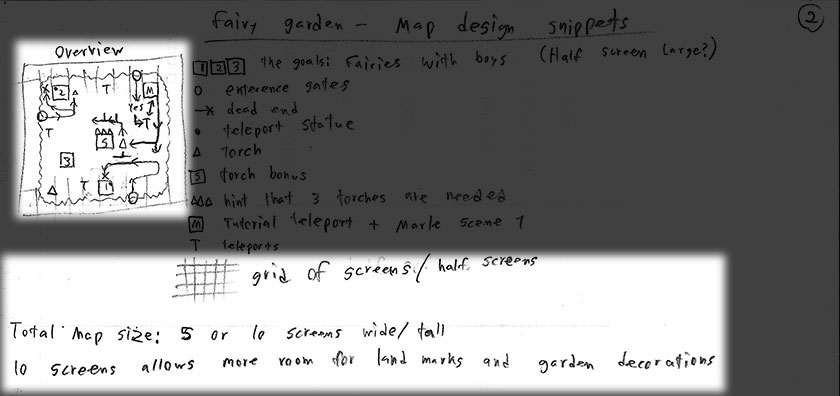 fairy garden - Map design snippets
2
Overview
1 2 3 the goals: Fairies with boys (Half screen large?)
O enterence gates
dead end
teleport statue
Δ Torch
S torch bonus
ΔΔΔ hint that 3 torches are needed
M Tutorial teleport + Marle scene 1
T teleports
•2
Δ
T
M
Yes
T
T
ΔΔΔ
S
Δ
3
Δ
T
1
grid of screens / half screens
Total map size: 5 or 10 screens wide/tall
10 screens allows more room for land marks and garden decorations